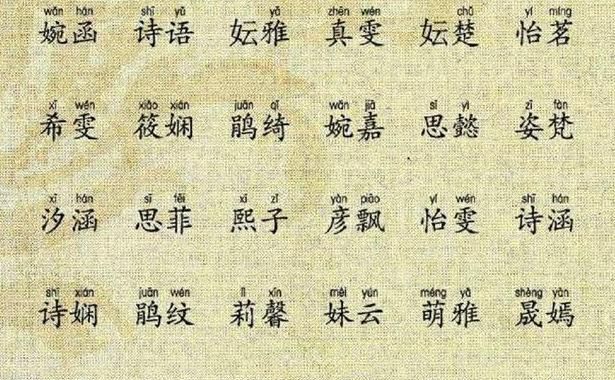 wǎn hán shī yǔ yǎ zhēn wén chǔ yí míng
婉函 诗语 妘雅 真雯 妘楚 怡茗
xī wén xiǎo xián juān qǐ wǎn jiā sī yì zī fàn
希雯 筱娴 鹃绮 婉嘉 思懿 姿梵
xī hán sī fēi xī zǐ yàn piāo yí wén shī hán
汐涵 思菲 熙子 彦飘 怡雯 诗涵
shī xián juān wén lì xīn mèi yún méng yǎ shèng yān
诗娴 鹃纹 莉馨 妹云 萌雅 晟嫣